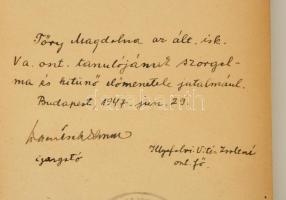 Tőry Magdolna az ált. isk.
Va. oszt. tanulójának szorgal-
ma és kitűnő előmenetele jutalmául.
Budapest, 1947. jun. 29.
igazgató
Illyefalvi Vitéz Zsoltné
oszt. fő.